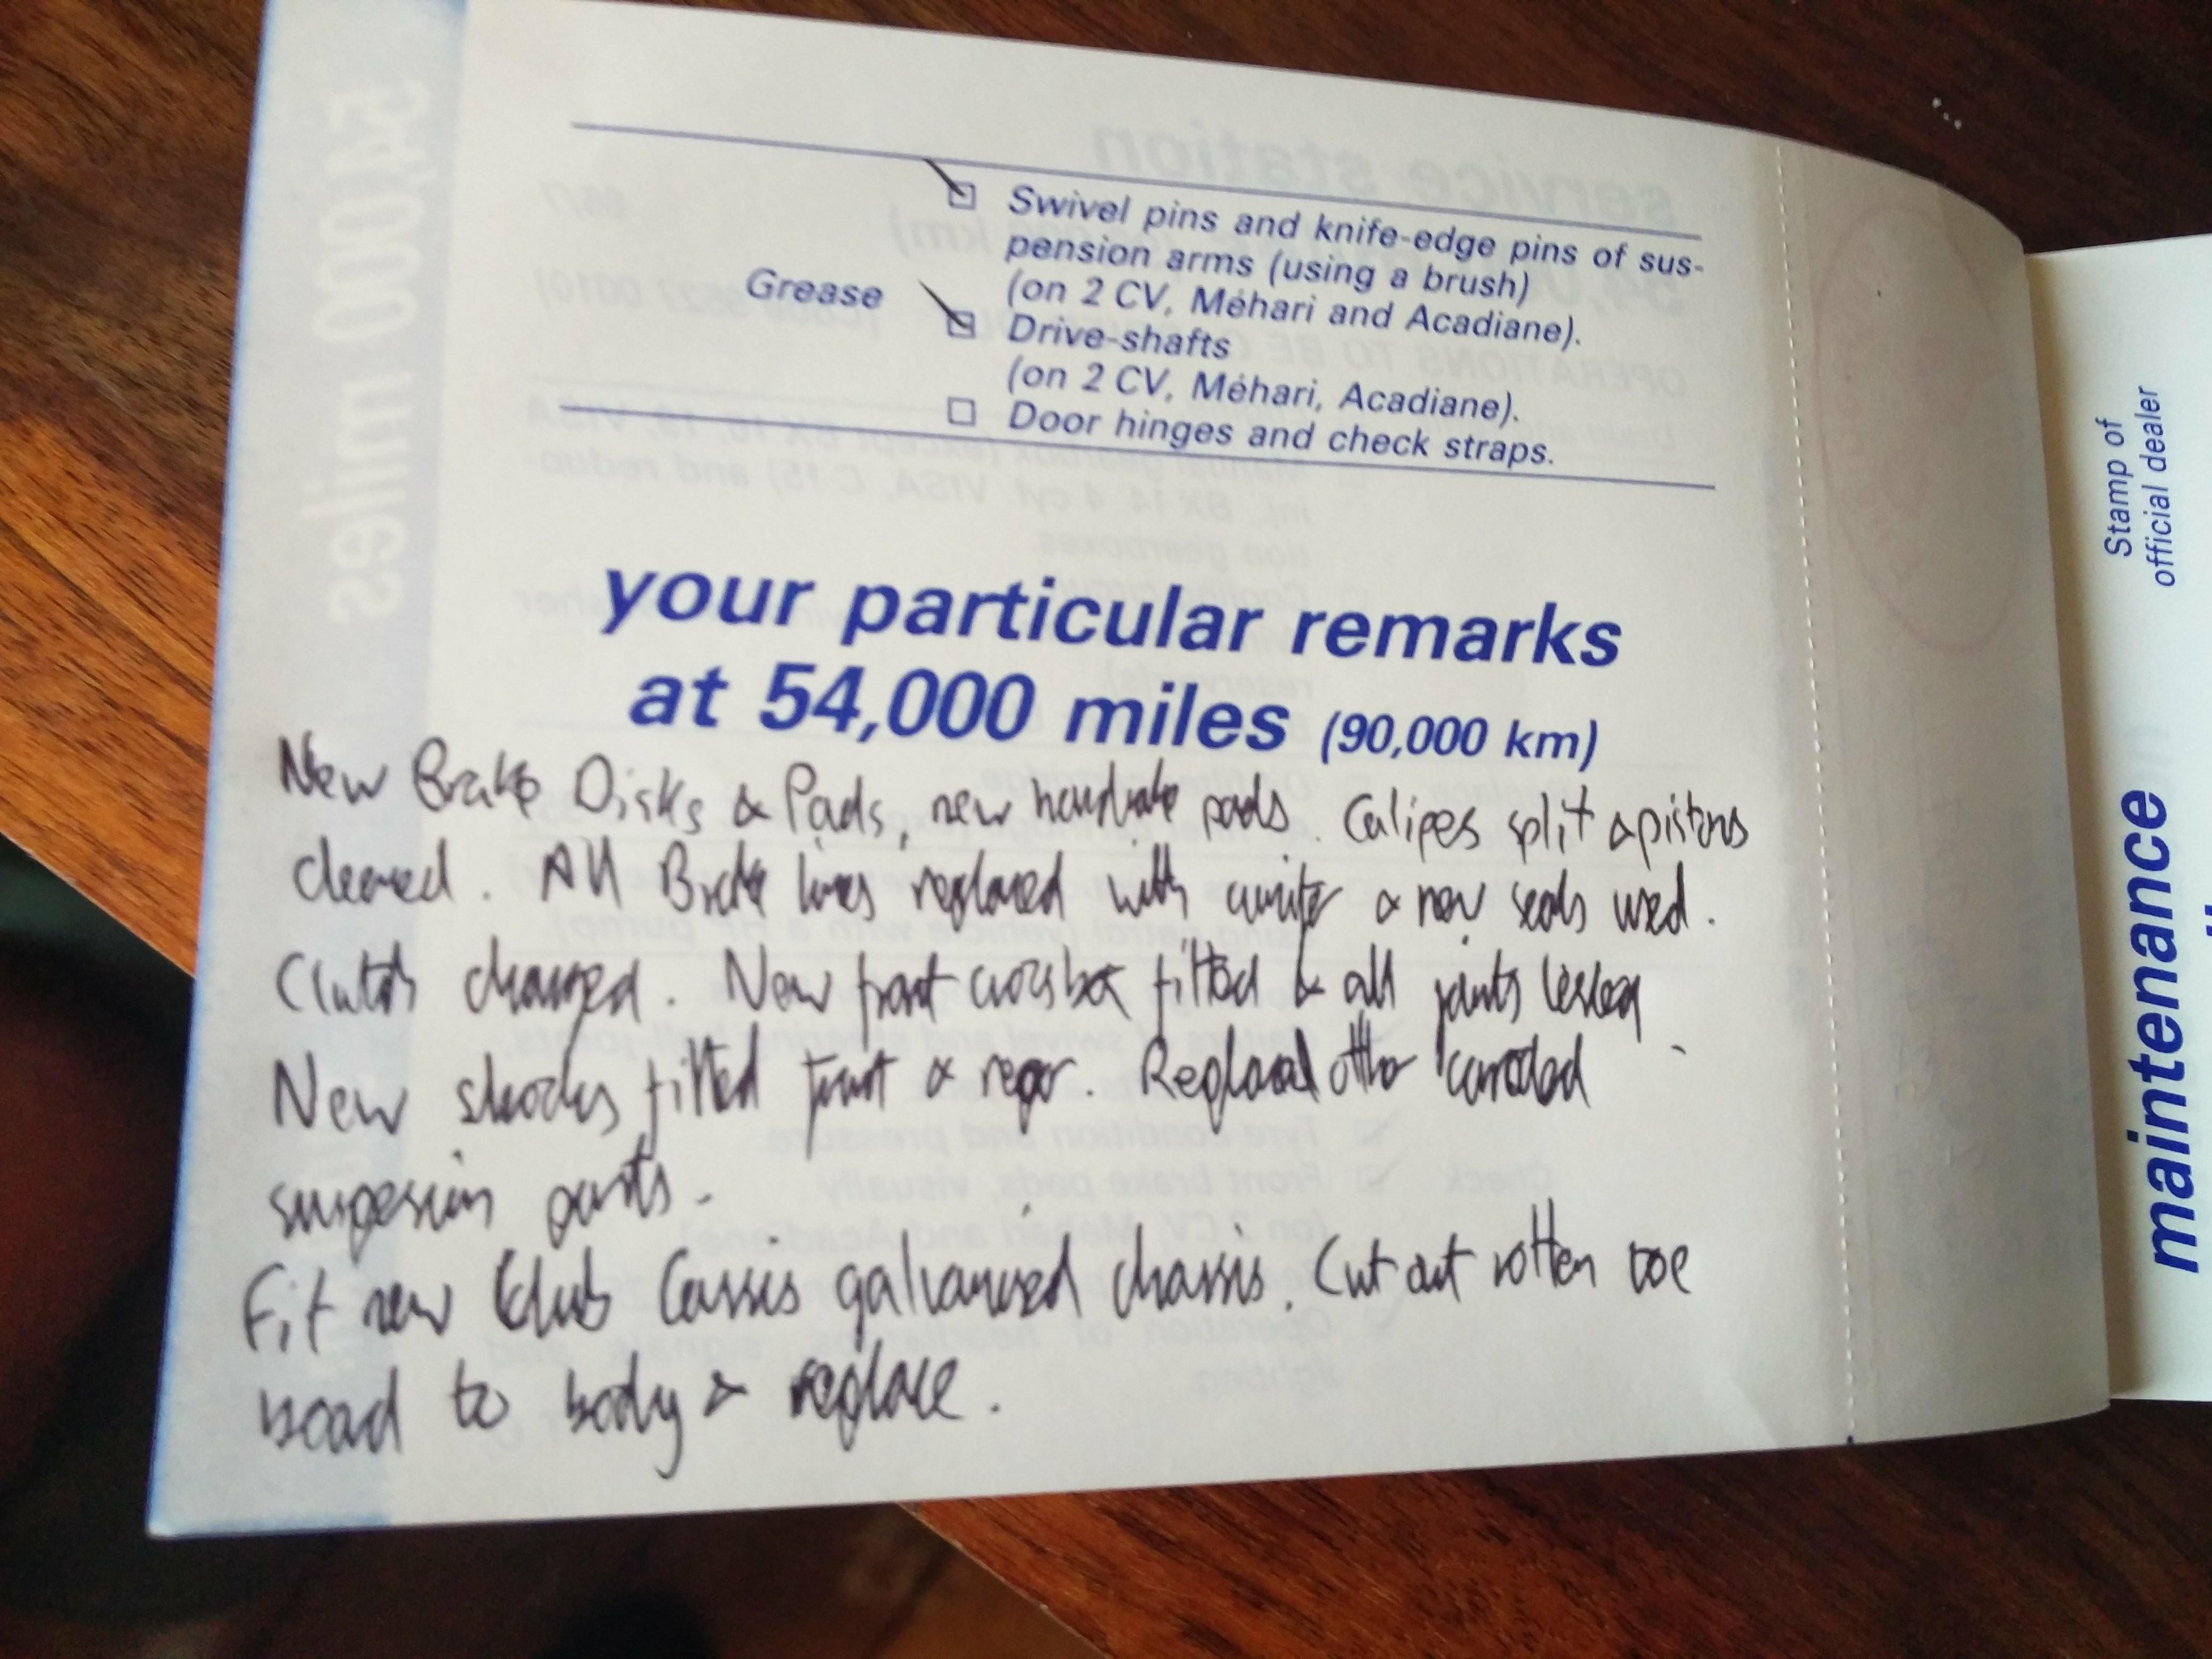 Swivel pins and knife-edge pins of sus-
pension arms (using a brush)
(on 2 CV, Méhari and Acadiane).
Grease
Drive-shafts
(on 2 CV, Méhari, Acadiane).
Door hinges and check straps.
your particular remarks
at 54,000 miles (90,000 km)
New Brake Disks & Pads, new handbrake pads. Calipes split & pistons
cleaned. All Brake lines replaced with & new seals used.
Clutch changed. New front fitted & all joints
New shocks fitted front & rear. Replaced other corroded
suspesion parts.
Fit new Club Cassis galvanised chassis. Cut out rotten toe
board to body & replace.
Stamp of
official dealer
maintenance
54000 miles
service station